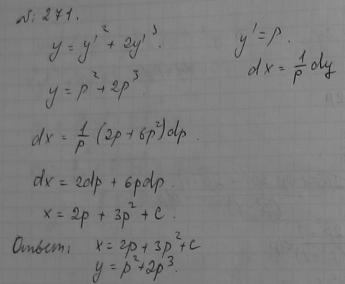 N: 271.
y = y'² + 2y'³.
y' = p.
y = p² + 2p³
dx = 1/p dy
dx = 1/p (2p + 6p²) dp.
dx = 2dp + 6pdp.
x = 2p + 3p² + c.
Ответ: x = 2p + 3p² + c
y = p² + 2p³.